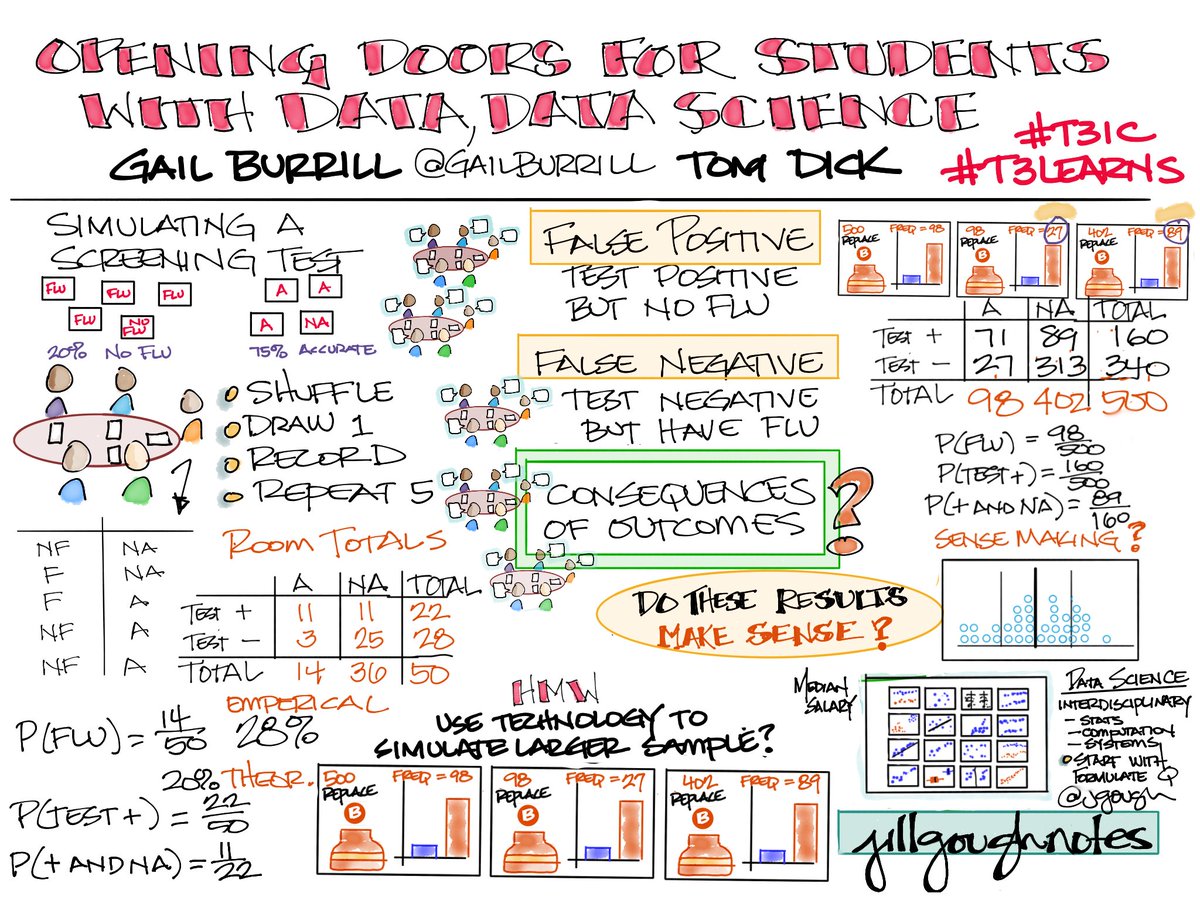 OPENING DOORS FOR STUDENTS
WITH DATA, DATA SCIENCE
GAIL BURRILL @GAILBURRILL TOM DICK
#T3IC
#T3LEARNS
SIMULATING A
SCREENING TEST
FLU FLU FLU
FLU NO FLU
20% NO FLU
A A
A NA
75% ACCURATE
SHUFFLE
DRAW 1
RECORD
REPEAT 5
NF NA
F NA
F A
NF A
NF A
ROOM TOTALS
A NA TOTAL
TEST + 11 11 22
TEST - 3 25 28
TOTAL 14 36 50
EMPERICAL
P(FLU) = 14/50 28%
20% THEOR.
P(TEST +) = 22/50
P(+ AND NA) = 11/22
FALSE POSITIVE
TEST POSITIVE
BUT NO FLU
FALSE NEGATIVE
TEST NEGATIVE
BUT HAVE FLU
CONSEQUENCES
OF OUTCOMES ?
DO THESE RESULTS
MAKE SENSE?
HMW
USE TECHNOLOGY TO
SIMULATE LARGER SAMPLE?
500 REPLACE B FREQ = 98
98 REPLACE B FREQ = 27
402 REPLACE B FREQ = 89
500 REPLACE B FREQ = 98
98 REPLACE B FREQ = 27
402 REPLACE B FREQ = 89
A NA TOTAL
TEST + 71 89 160
TEST - 27 313 340
TOTAL 98 402 500
P(FLU) = 98/500
P(TEST +) = 160/500
P(+ AND NA) = 89/160
SENSE MAKING?
MEDIAN
SALARY
DATA SCIENCE
INTERDISCIPLINARY
- STATS
- COMPUTATION
- SYSTEMS
START WITH
FORMULATE Q
@jgough
jillgoughnotes